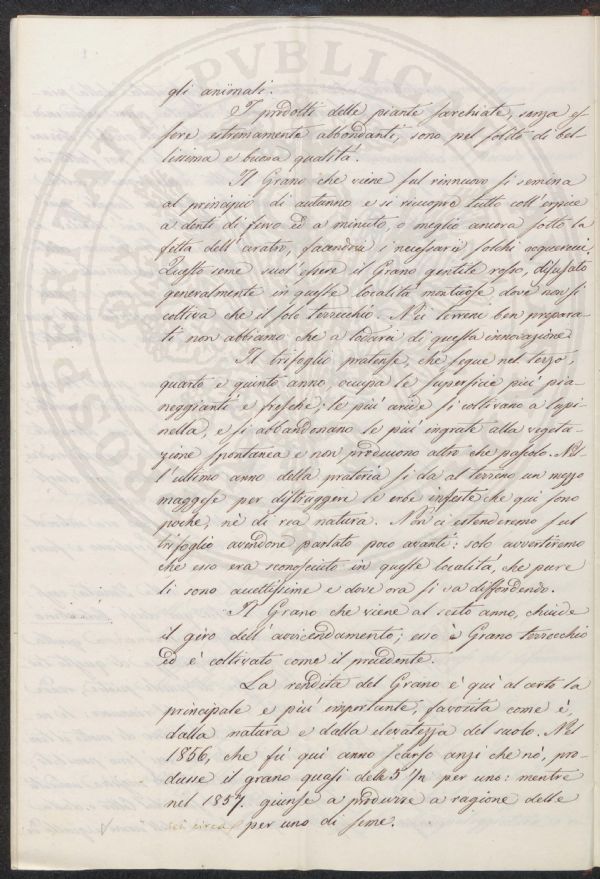 gli animali.
I prodotti delle piante sarchiate, senza es
sere estremamente abbondanti, sono pel solito di bel-
lissima e buona qualità.
Il Grano che viene sul rinnuovo si semina
al principio di autunno e si ricuopre tutto coll'erpice
a denti di ferro ed a minuto, o meglio ancora sotto la
fetta dell'aratro, facendosi i necessarii solchi acquerecci.
Questo seme suol'essere il Grano gentile rosso, disusato
generalmente in queste località montuose, dove non si
coltiva che il solo terrecchio. Nei terreni ben prepara-
ti non abbiamo che a lodarci di questa innovazione.
Il trifoglio pratense, che segue nel terzo,
quarto e quinto anno, occupa le superficie più pia-
neggianti e fresche; le più aride si coltivano a lupi-
nella, e si abbandonano le più ingrate alla vegeta-
zione spontanea e non producono altro che pascolo. Nel
l'ultimo anno della prateria si dà al terreno un mezzo
maggese per distruggere le erbe infeste che qui sono
poche, nè di rea natura. Non ci estenderemo sul
trifoglio avendone parlato poco avanti: solo avvertiremo
che esso era sconosciuto in queste località, che pure
li sono adattissime e dove ora si va diffondendo.
Il Grano che viene al sesto anno, chiude
il giro dell'avvicendamento; esso è Grano terrecchio
ed è coltivato come il precedente.
La rendita del Grano è quì al certo la
principale e più importante, favorita come è,
dalla natura e dalla elevatezza del suolo. Nel
1856, che fu quì anno scarso anzi che nò, pro-
dusse il grano quasi delle 5 per uno: mentre
nel 1857. giunse a produrre a ragione delle
sei circa per uno di seme.